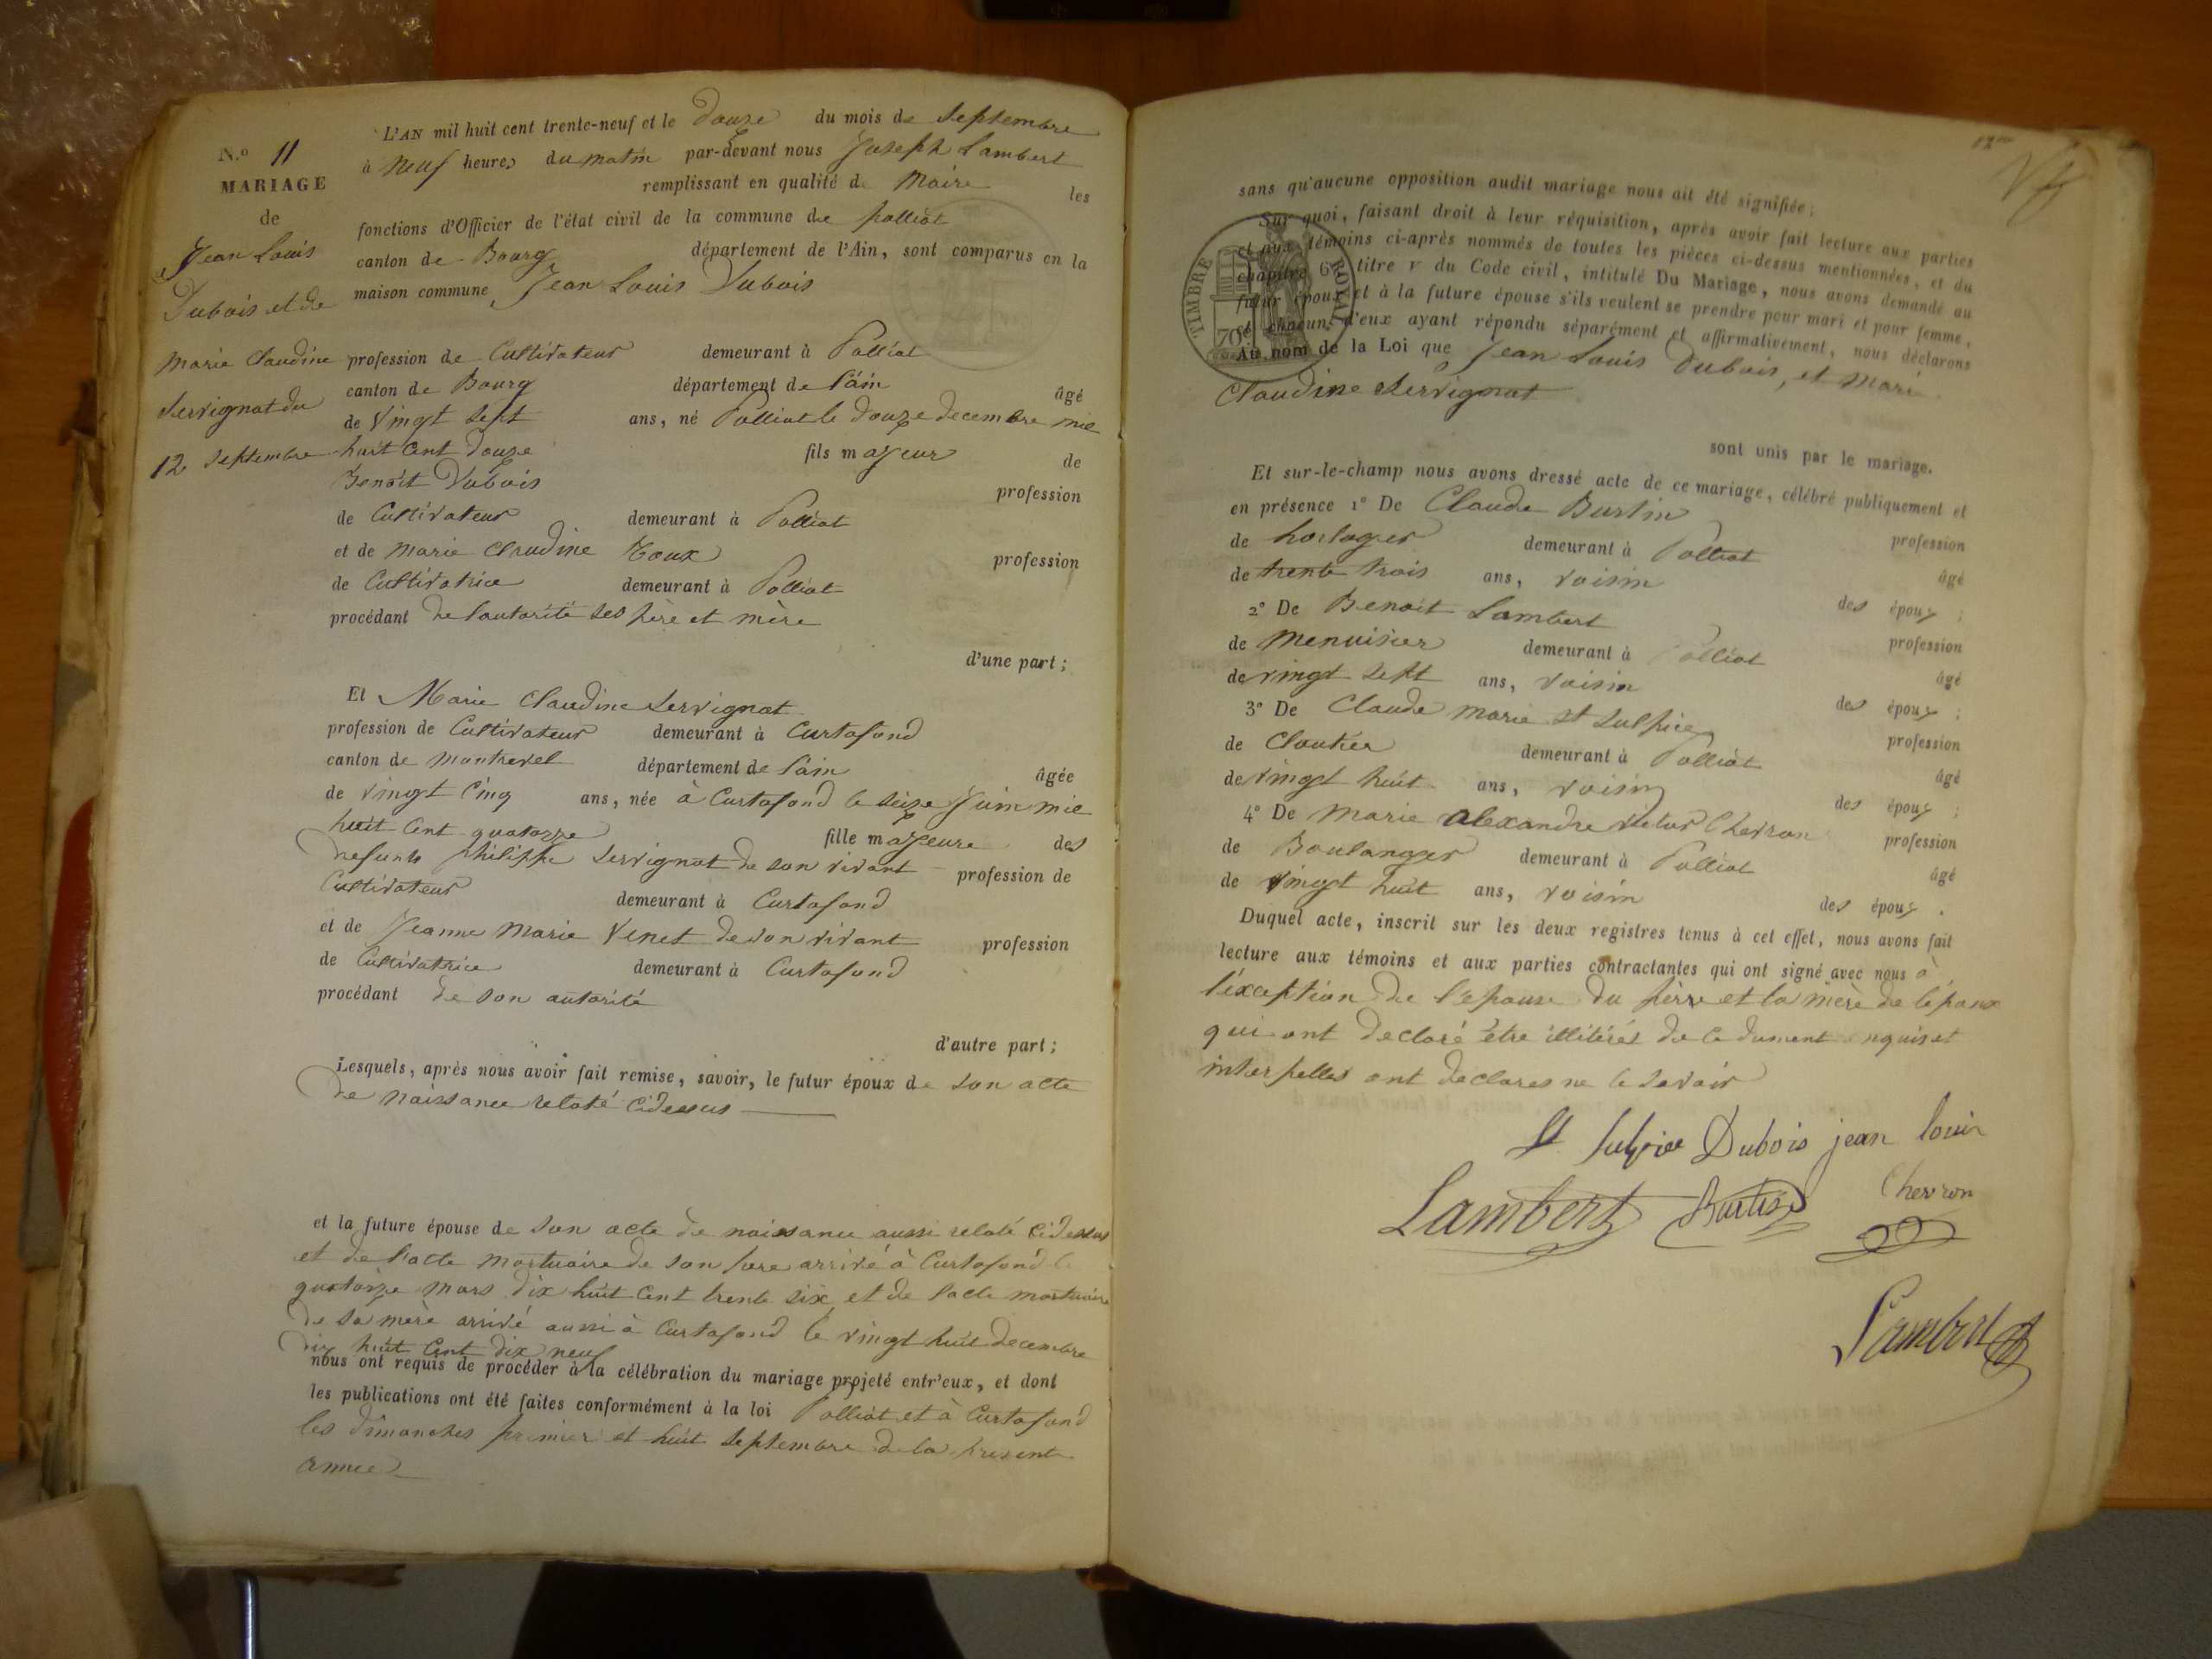 N.o 11
MARIAGE
de
Jean Louis
Dubois et de
Marie Claudine
Servignat du
12 Septembre
L'AN mil huit cent trente-neuf et le douze du mois de Septembre
à neuf heures du matin par-devant nous Joseph Lambert
remplissant en qualité de Maire les
fonctions d'Officier de l'état civil de la commune de polliat
canton de Bourg département de l'Ain, sont comparus en la
maison commune Jean Louis Dubois
profession de Cultivateur demeurant à Polliat
canton de Bourg département de l'ain âgé
de Vingt Sept ans, né Polliat le douze decembre mil
huit Cent douze fils majeur de
Benoit Dubois profession
de Cultivateur demeurant à Polliat
et de Marie Claudine Roux profession
de Cultivatrice demeurant à Polliat
procédant de l'autorité ses père et mère
d'une part;
Et Marie Claudine Servignat
profession de Cultivateur demeurant à Curtafond
canton de Montrevel département de l'ain âgée
de Vingt Cinq ans, née à Curtafond le seize Juin mil
huit Cent quatorze fille majeure des
defunts philippe Servignat de son vivant profession de
Cultivateur demeurant à Curtafond
et de Jeanne Marie Venet de son vivant profession
de Cultivatrice demeurant à Curtafond
procédant de son autorité
d'autre part;
Lesquels, après nous avoir fait remise, savoir, le futur époux de son acte
de naissance relaté Cidessus
et la future épouse de son acte de naissance aussi relaté Cidessus
et de l'acte mortuaire de son père arrivé à Curtafond le
quatorze mars dix huit Cent trente six et de l'acte mortuaire
de sa mère arrivé aussi à Curtafond le vingt huit decembre
dix huit Cent dix neuf
nous ont requis de procéder à la célébration du mariage projeté entr'eux, et dont
les publications ont été faites conformément à la loi Polliat et à Curtafond
les dimanches premier et huit Septembre de la presente
année
sans qu'aucune opposition audit mariage nous ait été signifiée;
Sur quoi, faisant droit à leur réquisition, après avoir fait lecture aux parties
et aux témoins ci-après nommés de toutes les pièces ci-dessus mentionnées, et du
chapitre 6 titre V du Code civil, intitulé Du Mariage, nous avons demandé au
futur époux et à la future épouse s'ils veulent se prendre pour mari et pour femme,
et chacun d'eux ayant répondu séparément et affirmativement, nous déclarons
Au nom de la Loi que Jean Louis Dubois, et Marie
Claudine Servignat
TIMBRE ROYAL
70c
sont unis par le mariage.
Et sur-le-champ nous avons dressé acte de ce mariage, célébré publiquement et
en présence 1° De Claude Burtin profession
de horloger demeurant à Polliat âgé
de trente trois ans, voisin des époux;
2° De Benoit Lambert profession
de menuisier demeurant à Polliat âgé
de vingt sept ans, voisin des époux;
3° De Claude Marie St Sulpice profession
de Cloutier demeurant à Polliat âgé
de vingt huit ans, voisin des époux;
4° De Marie alexandre victor Chevron profession
de Boulanger demeurant à Polliat âgé
de vingt huit ans, voisin des époux.
Duquel acte, inscrit sur les deux registres tenus à cet effet, nous avons fait
lecture aux témoins et aux parties contractantes qui ont signé avec nous à
l'éxception de l'epouse du père et la mère de l'époux
qui ont declaré être illitérés de ce dument enquis et
interpellés ont déclares ne le savoir
St Sulpice Dubois jean louis
Lambert Burtin Chevron
Lambert